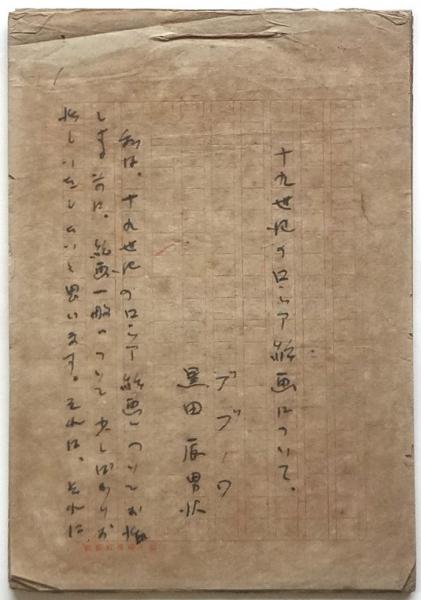 十九世紀のロシア絵画について。
ブブノワ
黒田辰男訳
私は、十九世紀のロシア絵画についてお話
します前に、絵画一般について少しばかりお
話しいたしたいと思います。それは、それに